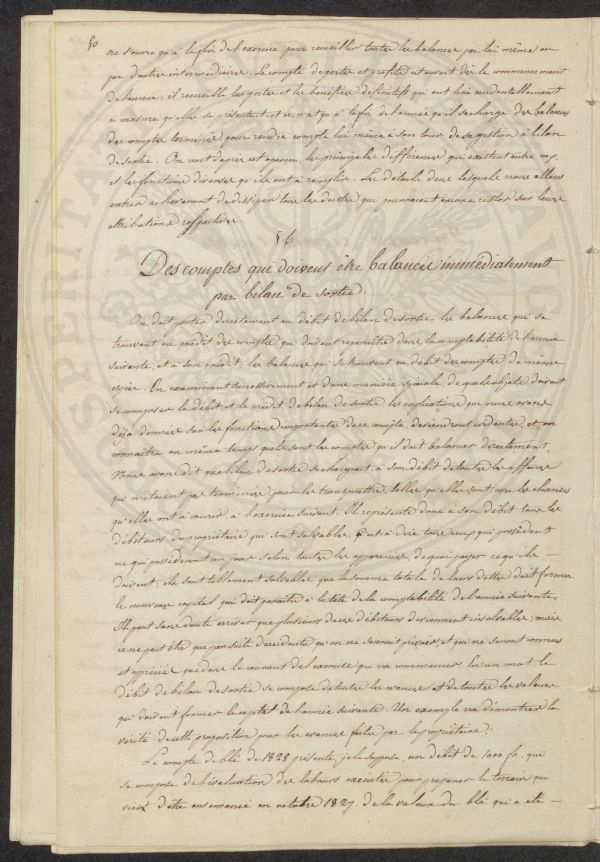 50
ne s'ouvre qu'à la fin de l'exercice, pour recueillir toutes les balances par lui même ou
par d'autres intermédiaires. Le compte de pertes et profits est ouvert dès le commencement
de l'année; il recueille les pertes et les bénéfices définitifs qui ont lieu accidentellement
a mesure qu'elles se présentent et ce n'est qu'à la fin de l'année qu'il se charge des balances
des comptes terminés pour rendre compte lui même à son tour de sa gestion à bilan
de sortie. On voit d'après cet aperçu, les principales différences qui existent entre eux
et les fonctions diverses qu'ils ont à remplir. Les détails dans lesquels nous allons
entrer acheveront de dissiper tous les doutes que pourraient encore rester sur leurs
attributions respectives.
§ 6
Des comptes qui doivent être balancés immédiatement
par bilan de sortie.
On doit porter directement au débit de bilan de sortie, les balances qui se
trouvent au crédit des comptes qui doivent reparaître dans la comptabilité de l'année
suivante, et à son crédit, les balances qui se trouvent au débit des comptes de même
espèce. En examinant successivement et d'une manière spéciale, de quels objets doivent
se composer le débit et le crédit de bilan de sortie, les explications que nous avons
déjà données sur les fonctions importantes de ce compte, deviendront évidentes, et on
connaîtra en même temps quels sont les comptes qu'il doit balancer directement.
Nous avons dit que bilan de sortie se chargeait, à son débit de toutes les affaires
qui n'étaient pas terminées, pour les transmettre, telles qu'elles sont avec les chances
qu'elles ont à courir à l'exercice suivant. Il représente donc à son débit tous les
débiteurs du propriétaire qui sont solvables, c'est à dire tous ceux qui possèdent
ou qui posséderont un jour selon toutes les apparences, de quoi payer ce qu'ils
doivent; ils sont tellement solvables que la somme totale de leurs dettes doit former
le nouveau capital qui doit paraître à la tête de la comptabilité de l'année suivante.
Il peut sans doute arriver que plusieurs de ces débiteurs deviennent insolvables; mais
ce ne peut être que par suite d'accidents qu'on ne saurait prévoir, et qui ne seront connus
et appréciés que dans le courant de l'exercice qui va commencer. En un mot le
débit de bilan de sortie se compose de toutes les avances et de toutes les valeurs
qui doivent former le capital de l'année suivante. Un exemple va démontrer la
vérité de cette proposition pour les avances faites par le propriétaire.
Le compte de blé de 1828 présente, je le suppose, un débit de 1000 fr. qui
se compose de l'évaluation des labours exécutés pour préparer le terrain qui
vient d'être ensemencé en octobre 1827. de la valeur du blé qui a été